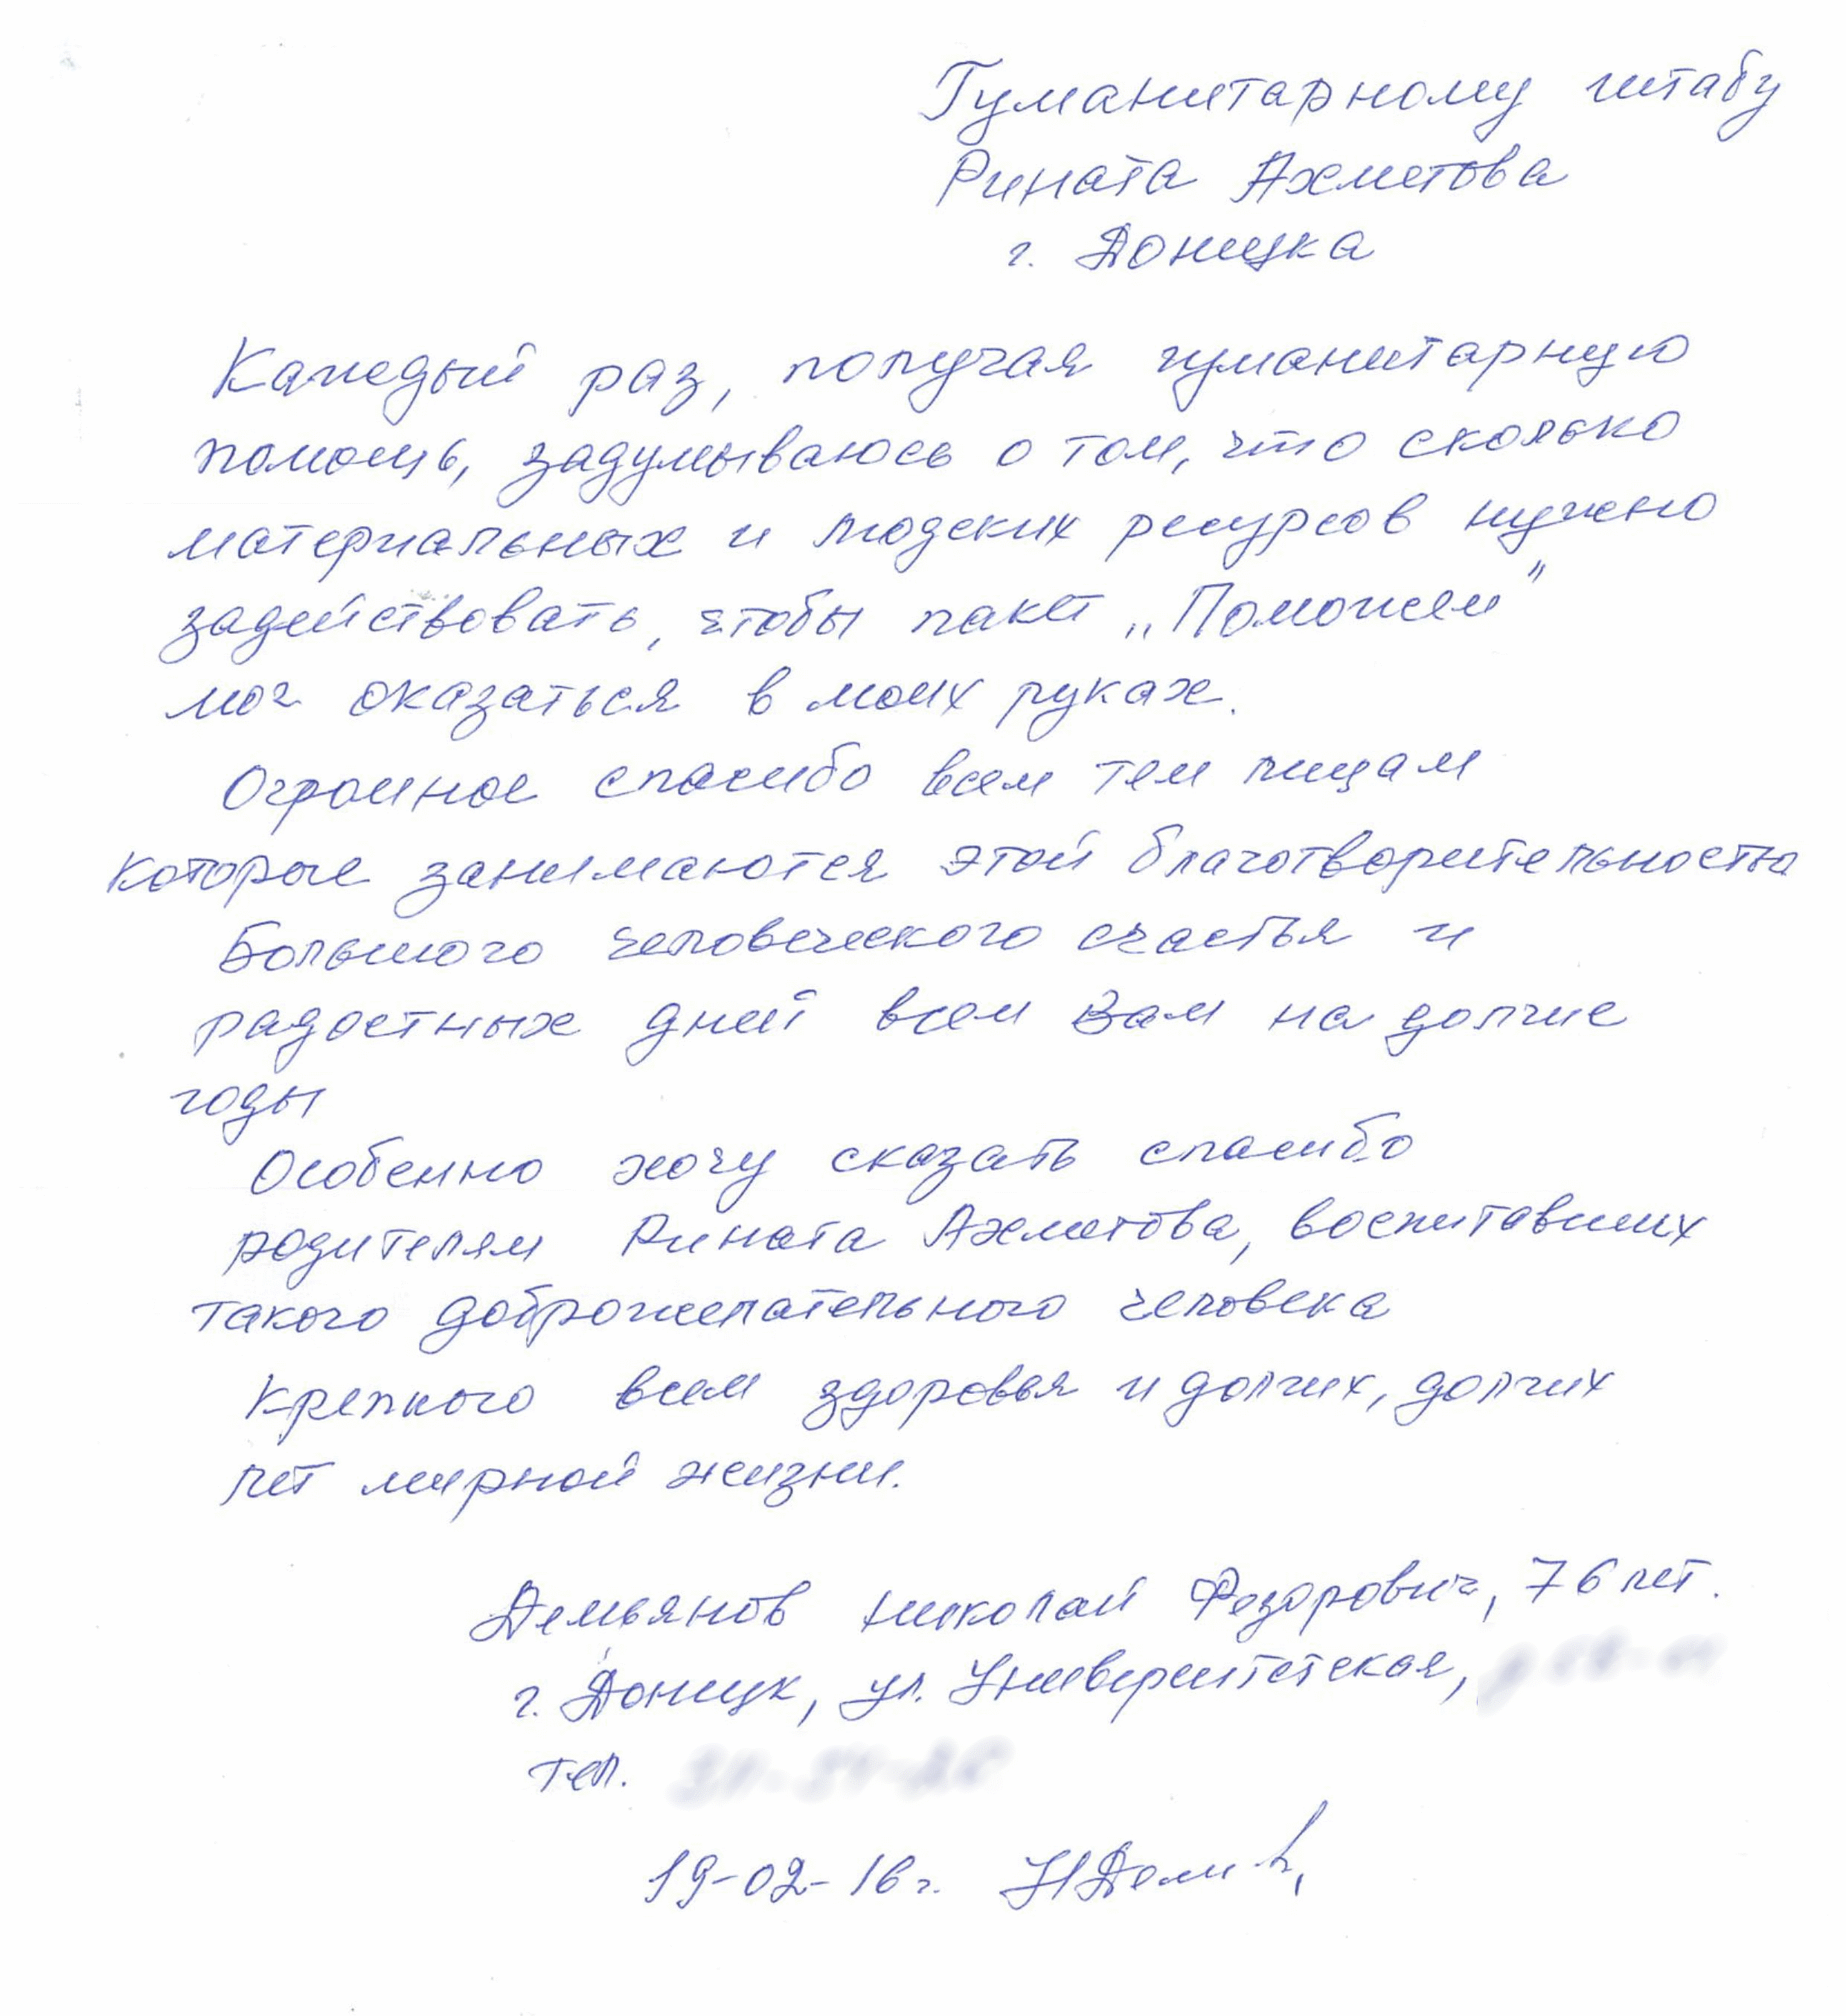 Гуманитарному штабу
Рината Ахметова
г. Донецка
Каждый раз, получая гуманитарную
помощь, задумываюсь о том, что сколько
материальных и людских ресурсов нужно
задействовать, чтобы пакет „Поможем"
мог оказаться в моих руках.
Огромное спасибо всем тем лицам
которые занимаются этой благотворительностью
Большого человеческого счастья и
радостных дней всем Вам на долгие
годы
Особенно хочу сказать спасибо
родителям Рината Ахметова, воспитавших
такого доброжелательного человека
Крепкого всем здоровья и долгих, долгих
лет мирной жизни.
Демьянов Николай Федорович, 76 лет.
г. Донецк, ул. Университетская,
тел.
19-02-16 г.